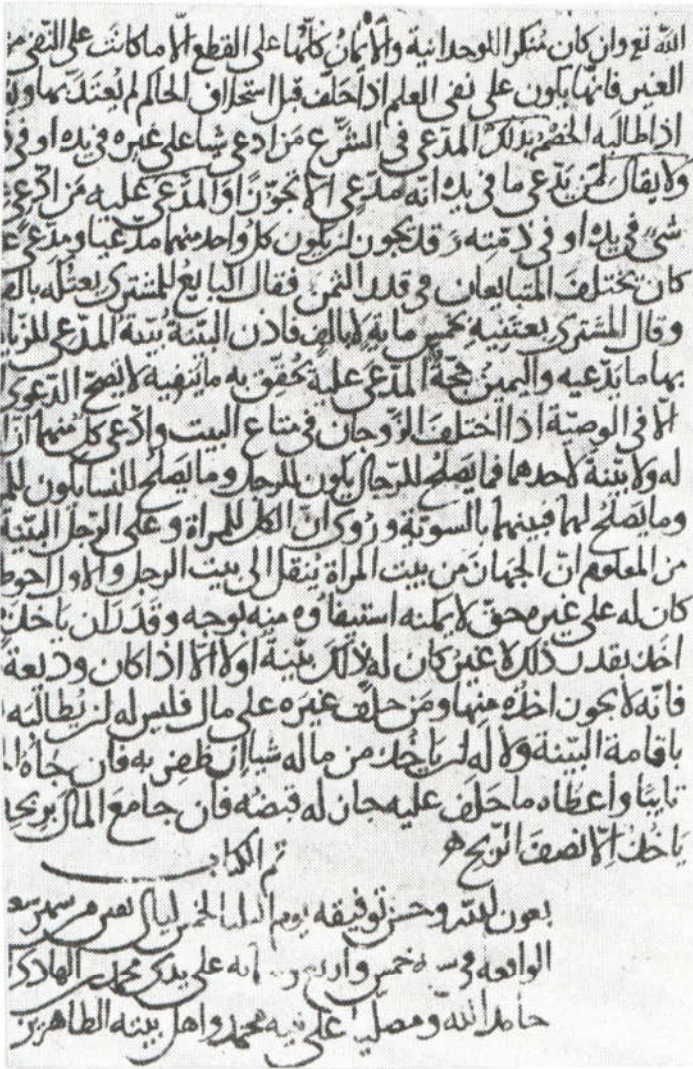 الله تع وان كان منكرا للوحدانية والأيمان كلها على القطع الّا ما كانت على النفي من
الغير فانها يكون على نفي العلم اذا حلف قبل استحلاف الحاكم لم يعتد بها
اذا طالبه الخصم بذلك المدّعي في الشرع من ادعى شيا على غيره في يده او في
ولا يقال لمن يدّعي ما في يده انه مدّعي الا تجوّزا والمدّعى عليه من ادّعي
شي في يده او في ذمته وقد يجوز ان يكون كل واحد منهما مدّعيا ومدّعى
كان يختلف المتبايعان في قدر الثمن فقال البايع للمشتري بعتكه بالف
وقال المشتري بعتنيه بخمس مايه لا بالف فاذن البيّنة بيّنة المدّعي
بها ما يدّعيه واليمين حجّة المدّعى عليه يحقّق به ما ينفيه لا يصحّ الدّعوى
الّا في الوصيّة اذا اختلف الزوجان في متاع البيت وادّعى كل منهما
له ولا بيّنة لاحدهما فما يصلح للرجال يكون للرجل وما يصلح للنسا يكون
وما يصلح لهما فبينهما بالسوية وروي انّ الكل للمراة وعلى الرّجل البيّنة
من المعلوم انّ الجهاز من بيت المراة ينقل الى بيت الرجل والاول احوط
كان له على غيره حق لا يمكنه استيفاؤه منه بوجه وقدر ان ياخذ
اخذ بقدر ذلك لا غير كان له بذلك بيّنة او لا الّا اذا كان وديعة
فانه لا يجوز اخذه منها ومن حلّف غيره على مال فليس له ان يطالبه
باقامة البيّنة ولا له ان ياخذ من ماله شيا ان ظفر به فان جاه
تايبا واعطاه ما حلف عليه جاز له قبضه فان جا مع المال بربحه
ياخذ الّا نصف الرّبح
تم الكتاب
بعون الله وحسن توفيقه يوم الخمس ليال من شهر
الواقعه في سنه خمس واربع على يدي محمد
حامدا لله ومصليا على نبيه محمد واهل بيته الطاهرين